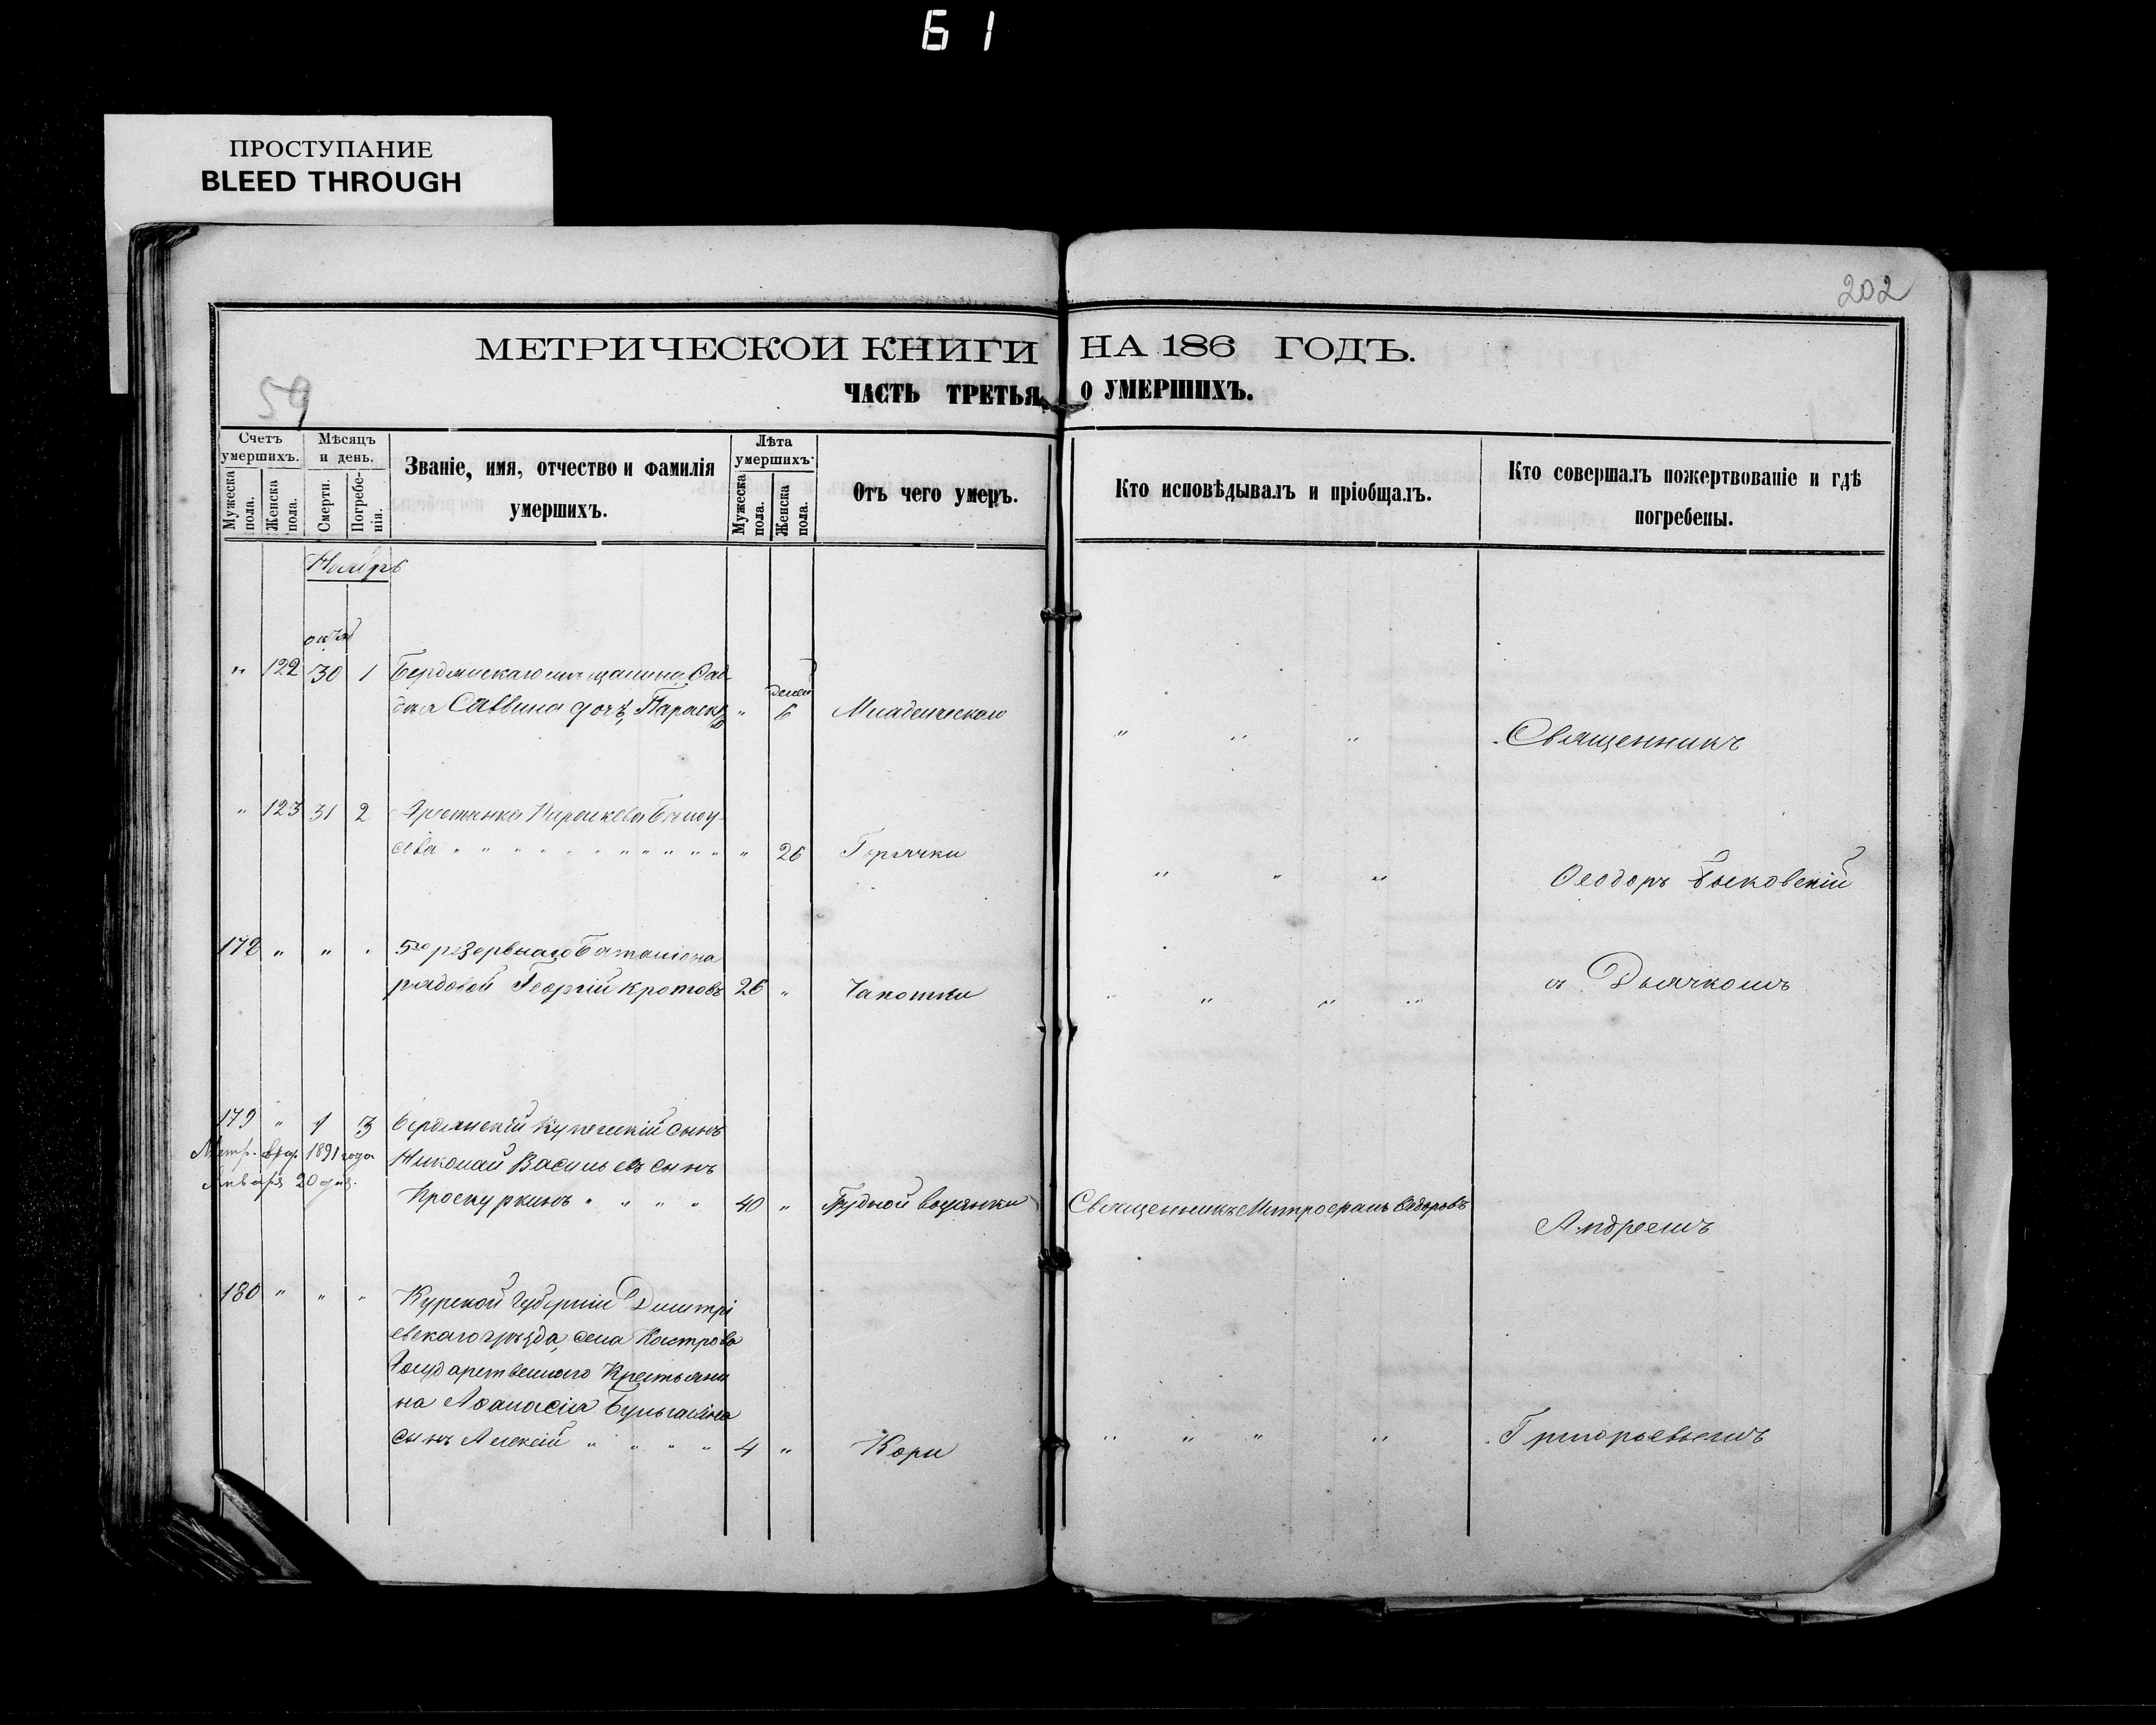 61
ПРОСТУПАНИЕ
BLEED THROUGH
202
МЕТРИЧЕСКОЙ КНИГИ НА 186 ГОДЪ.
59
ЧАСТЬ ТРЕТЬЯ О УМЕРШИХЪ.
Счетъ умершихъ.
Мужеска пола.
Женска пола.
Мѣсяцъ и день.
Смерти.
Погребенія.
Званіе, имя, отчество и фамилія умершихъ.
Лѣта умершихъ.
Мужеска пола.
Женска пола.
Отъ чего умеръ.
Кто исповѣдывалъ и пріобщалъ.
Кто совершалъ пожертвованіе и гдѣ погребены.
Ноябрь
" 122 30 1 Бердянскаго мѣщанина Фад-
дея Саввина дочь, Параскева " дней 6 Младенческаго
" " " Священникъ
" 123 31 2 Арестанка Параскева
" 26 Горячки
" " " Ѳеодоръ Быковскій
172 " " " 5го резервнаго Баталіона
рядовой Георгій Кротовъ 26 " Чахотки
" " " " съ Дьячкомъ
179 " 1 3 Бердянскій Купеческій сынъ
Метр. выд. 1891 года
Николай Васильевъ сынъ
Января 20 дня.
Проскуркинъ " " " " 40 " Грудной водянки Священникъ Митрофанъ Ѳедоровъ
Андреемъ
180 " " " Курской Губерніи Дмитрі
евскаго уѣзда, села Кастрова
Государственнаго Крестьяни
на Аѳанасія
сынъ Алексѣй " " " " 4 " Кори
" " " " Григорьевымъ